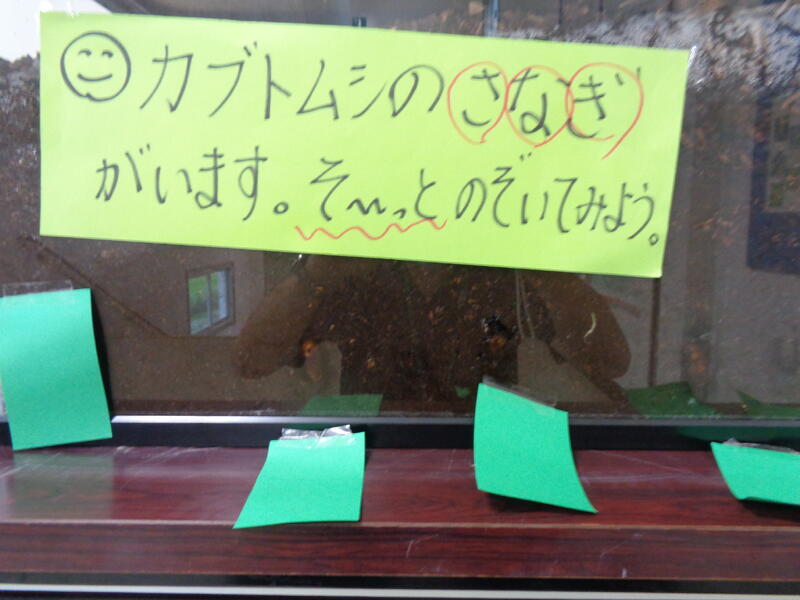 カブトムシのさなぎ
がいます。そ〜っとのぞいてみよう。